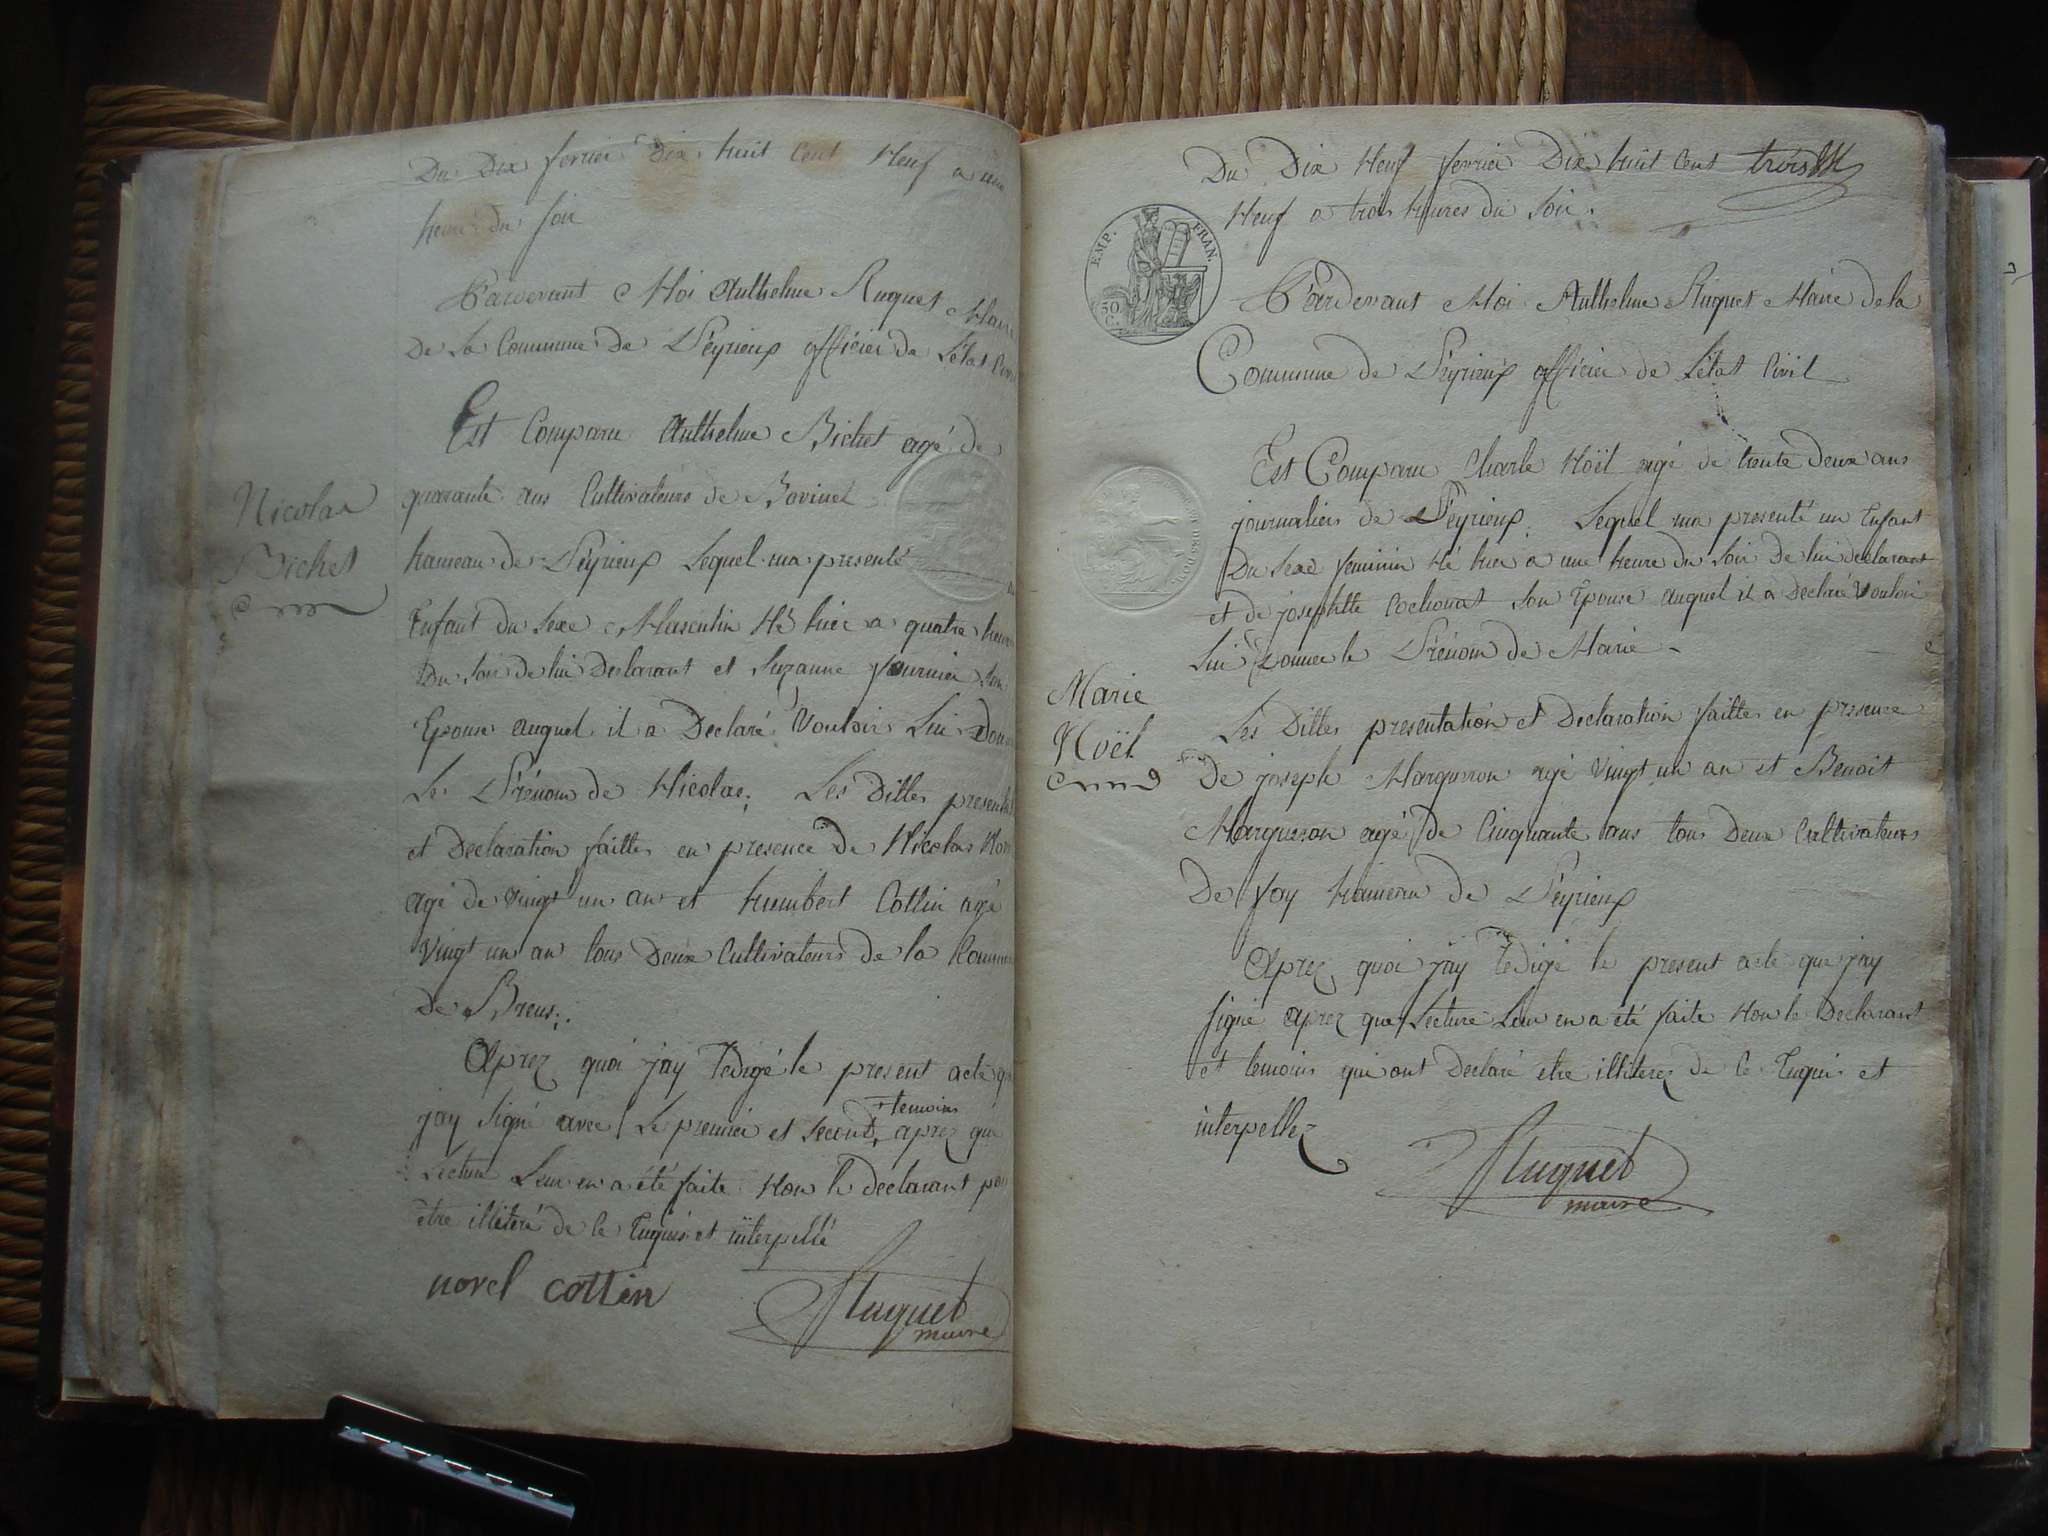 Du Dix fevrier Dix huit Cent Neuf a une
heure du Soir
Pardevant Moi Anthelme Ruquet Maire
De La Commune De Peyrieux officier de L'état Civil
Est Comparu Anthelme Bichet agé de
quarante ans Cultivateurs de Bovinel
hameau de Peyrieux Lequel ma presenté
Nicolas
Bichet
Enfant du Sexe Masculin Né hier a quatre heures
Du Soir de lui Declarant et Suzanne fournier Son
Epouse auquel il a Declaré Vouloir Lui Donner
Le Prénom de Nicolas; Les Dittes
et Declaration faittes en presence de Nicolas
agé de vingt un an et humbert Cottin agé
vingt un an tous Deux Cultivateurs de la Commune
de Brens;.
Aprez quoi jay Redigé le present acte que
jay Signé avec Le premier et Second +temoins aprez que
Lecture Leur en a été faite Non le declarant pour
être illiteré de ce Enquis et interpellé
norel cottin
Ruquet
maire
Du Dix Neuf fevrier Dix huit Cent trois
Neuf a trois heures du Soir.
EMP. FRAN.
50
C.
Pardevant Moi Anthelme Ruquet Maire de la
Commune de Peyrieux officier de L'état Civil
Est Comparu Charle Noël agé de trente Deux ans
journalier de Peyrieux. Lequel ma presenté un Enfant
Du Sexe feminin Né hier a une heure du Soir de lui declarant
et de josephtte Cochonat Son Epouse auquel il a Declaré Vouloir
Lui Donner le Prénom de Marie
Marie
Noël
Les Dittes presentation et Declaration faittes en presence
De joseph Marguron agé vingt un an et Benoit
Marguron agé de Cinquante ans tous Deux Cultivateurs
De fay hameau de Peyrieux
Aprez quoi jay Redigé le present acte que jay
Signé aprez que Lecture Leur en a été faite Non le Declarant
et temoins qui ont Declaré etre illiterez de ce Enquis et
interpellez
Ruquet
maire